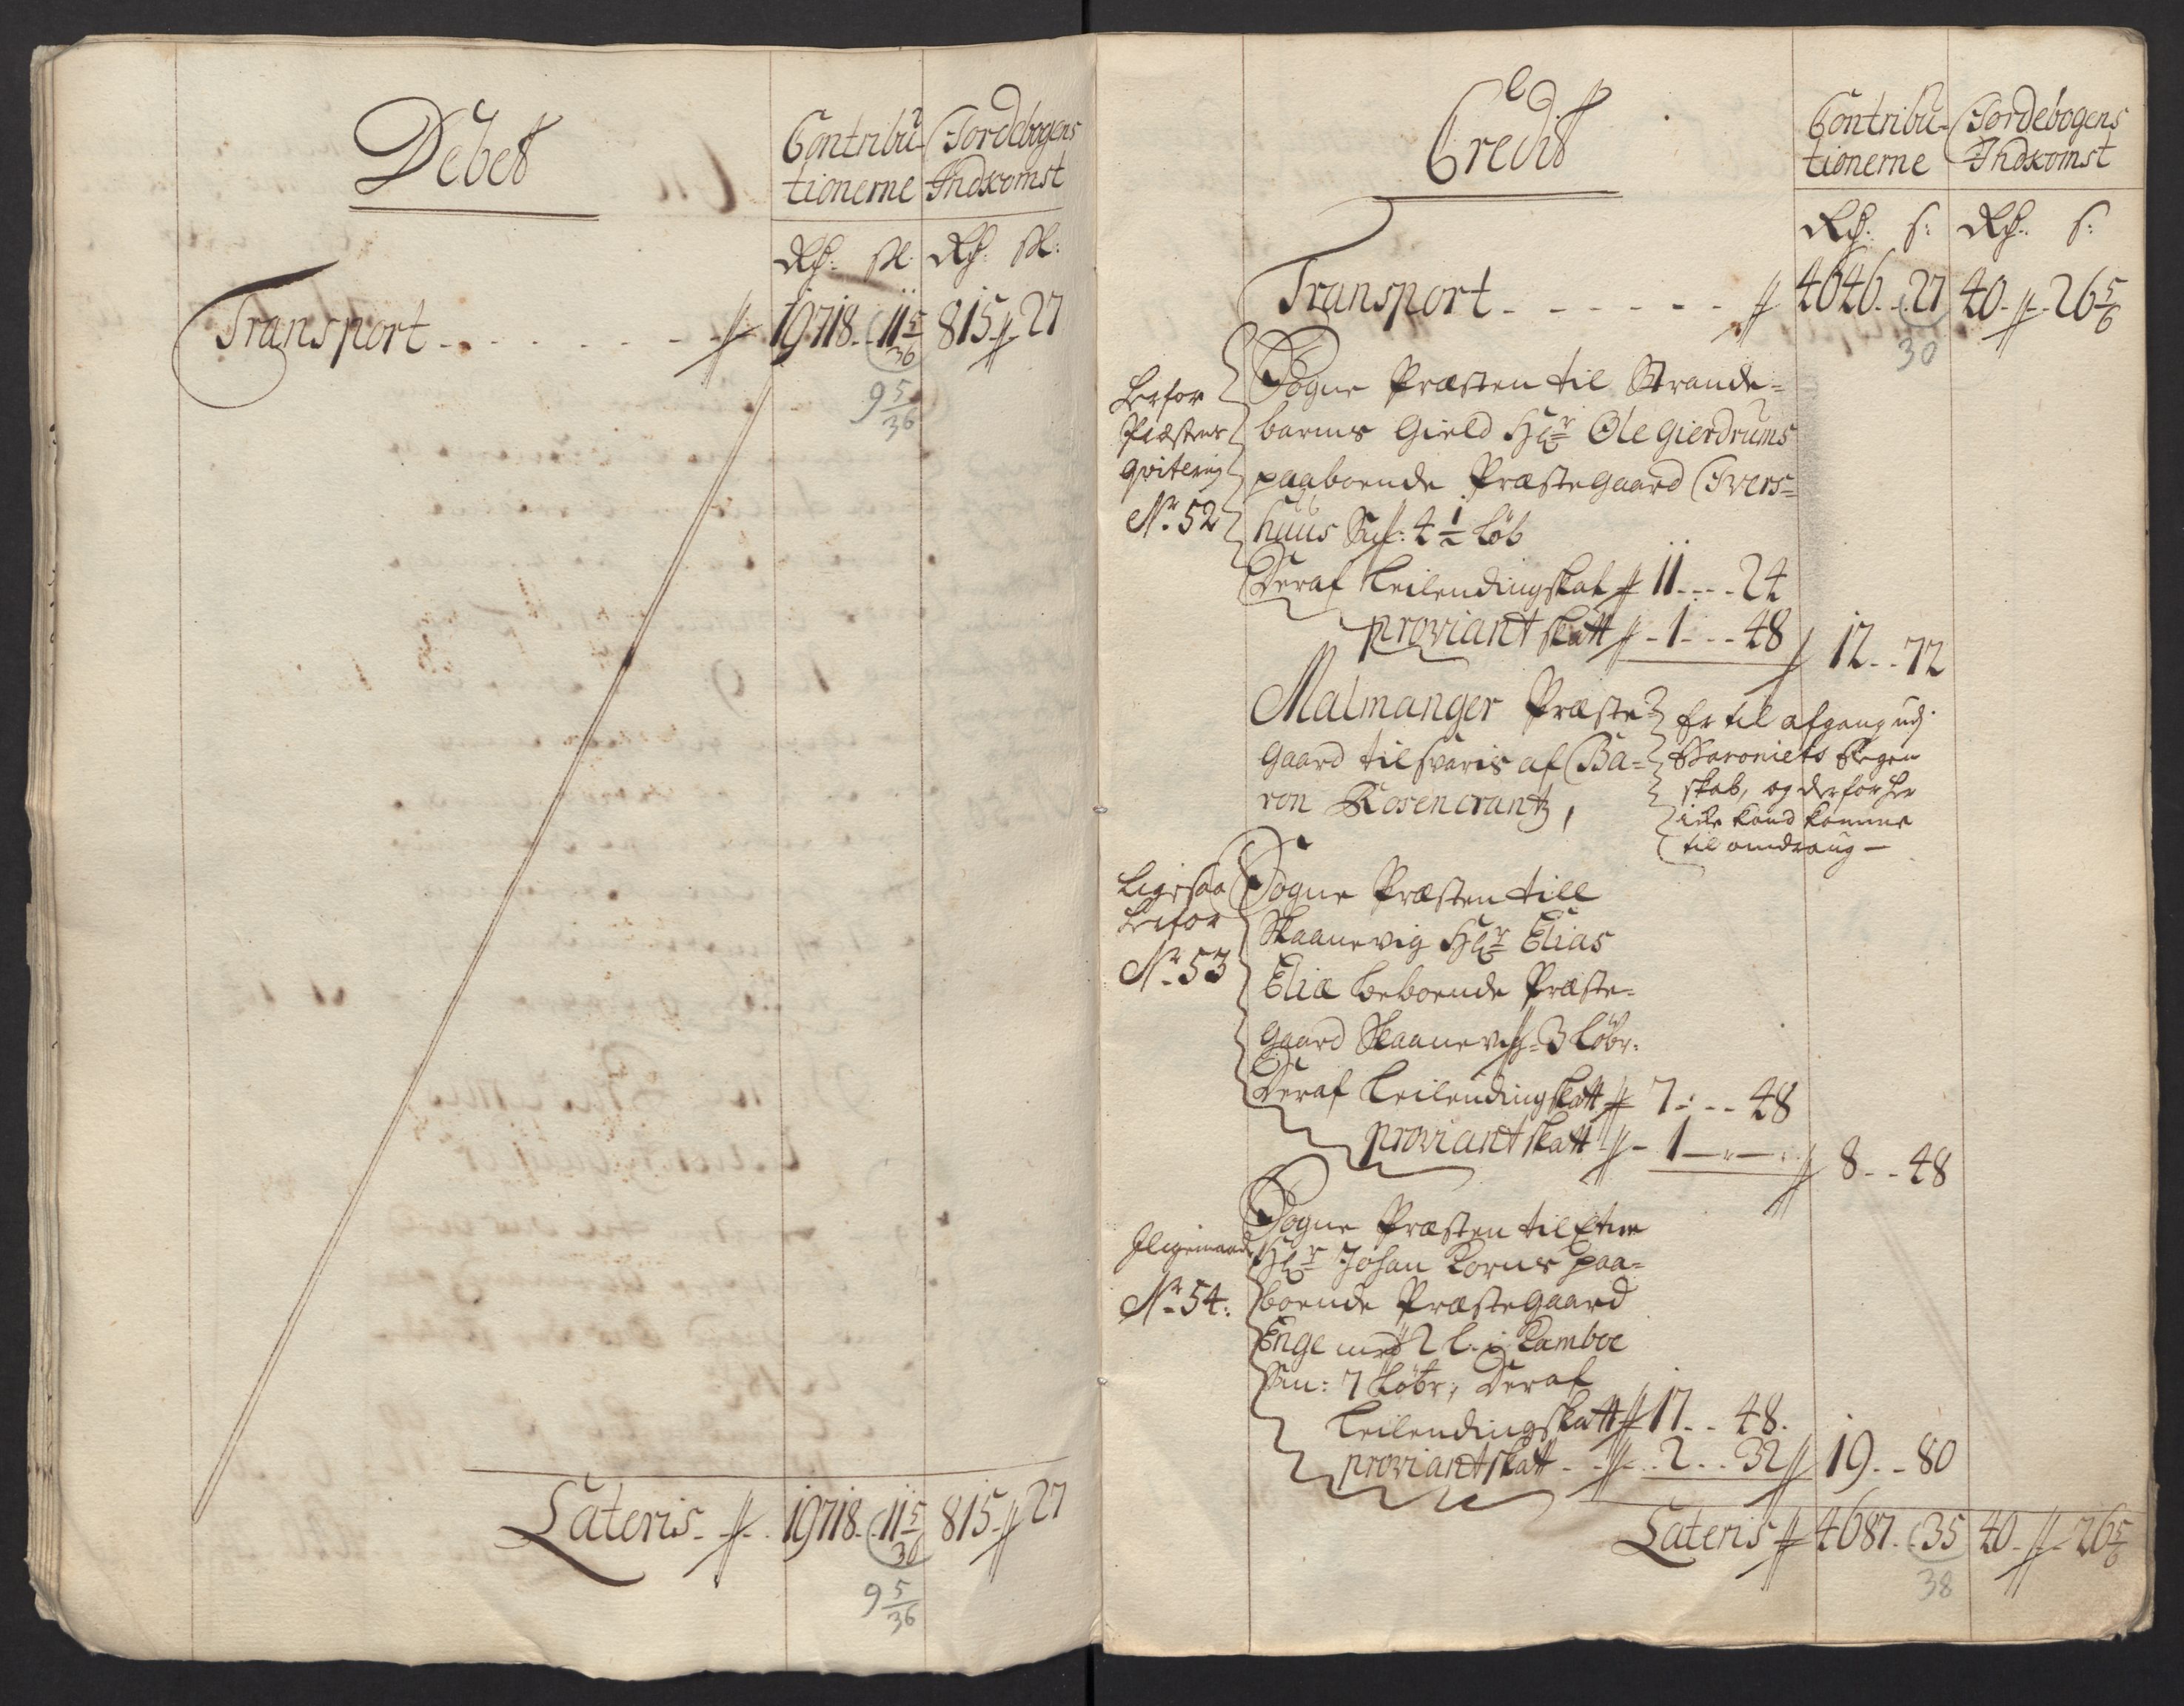 Debet
Contribu- Jordebogens
tionerne Indkomst
Rd: sk: Rd: sk:
Transport - - - - - - - 19718 - 11 5/36 815 - 27
9 5/36
Lateris - - 19718 - 11 5/36 815 - 27
9 5/36
Credit
Contribu- Jordebogens
tionerne Indkomst
Rd: s: Rd: s:
Transport - - - - - - 4646 - 27 40 - 26 5/6
30
Herfor
Præstens
qvitering
No. 52
Sogne Præsten til Strande-
barms Gield Hr Ole Gierdrums
paaboende Præstegaard Ivers-
huus 4 1/2 Løb
Deraf Leilendingskat 11 - - - 24
proviantskatt - 1 - - - 48 12 - - 72
Malmanger Præste-
gaard tilsvaris af Ba-
ron Rosencrantz,
Er til afgang udj
Baroniets Regen
skab, og derfor her
icke kand komme
til omdraug -
Ligesaa
herfor
No. 53
Sogne Præsten till
Skaanevig Hr Elias
Eliæ beboende Præste-
gaard Skaanevig - 3 Løbr:
Deraf Leilendingskatt 7 - - - 48
proviantskatt - 1 - - - 8 - - 48
Iligemaade
No. 54:
Sogne Præsten til Etne
Hr Johan Korns paa-
boende Præstegaard
Enge med 2 l: i Kamboe
7 Løbr; Deraf
Leilendingskatt 17 - - 48.
proviantskatt - - 2 - - 32 19 - - 80
Lateris 4687 - 35 40 - 26 5/6
38